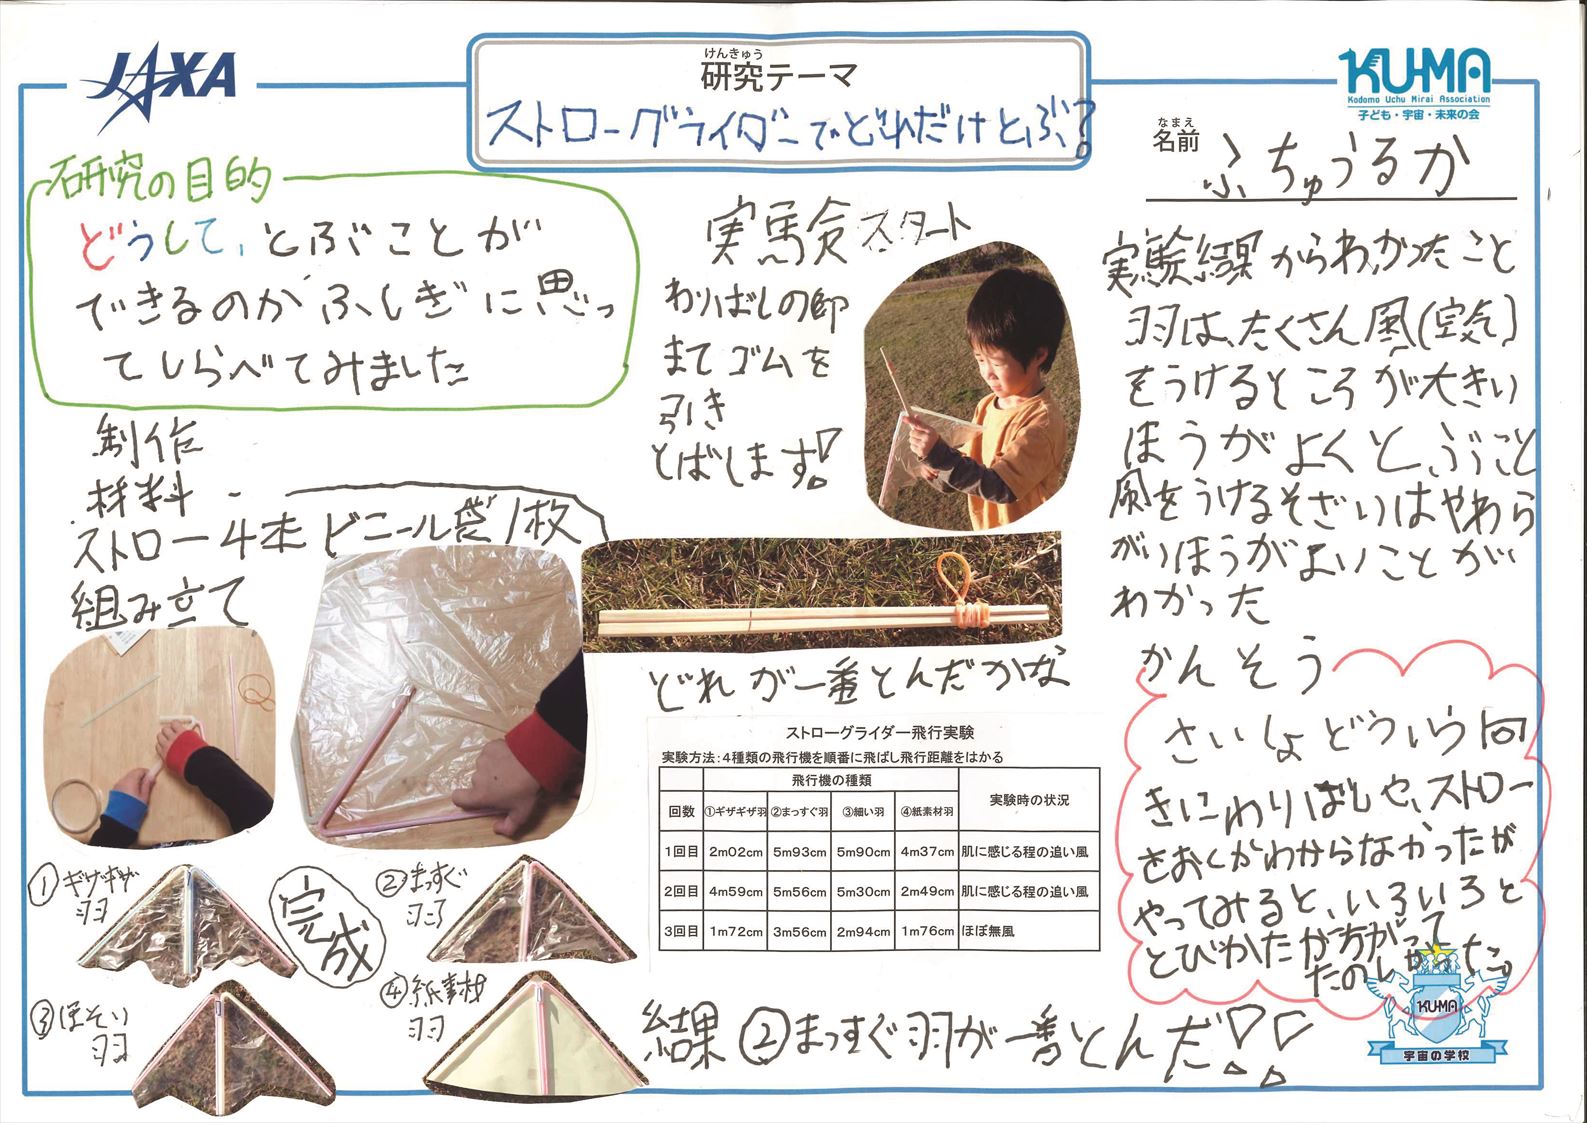 JAXA
けんきゅう
研究テーマ
ストローグライダーでどれだけとぶ?
KUMA
Kodomo Uchu Mirai Association
子ども・宇宙・未来の会
なまえ
名前
ふちゅうるか
研究の目的
どうして、とぶことが
できるのかふしぎに思っ
てしらべてみました
制作
材料
ストロー4本 ビニール袋1枚
組み立て
①ギザギザ
羽
②まっすぐ
羽
完成
③ほそい
羽
④紙素材
羽
実験スタート
わりばしの印
まてゴムを
引き
とばします!
どれが一番とんだかな
ストローグライダー飛行実験
実験方法:4種類の飛行機を順番に飛ばし飛行距離をはかる
回数 飛行機の種類 実験時の状況
①ギザギザ羽 ②まっすぐ羽 ③細い羽 ④紙素材羽
1回目 2m02cm 5m93cm 5m90cm 4m37cm 肌に感じる程の追い風
2回目 4m59cm 5m56cm 5m30cm 2m49cm 肌に感じる程の追い風
3回目 1m72cm 3m56cm 2m94cm 1m76cm ほぼ無風
結果 ②まっすぐ羽が一番とんだ!!
実験結果からわかったこと
羽は、たくさん風(空気)
をうけるところが大きい
ほうがよくとぶこと
風をうけるそざいはやわら
がいほうがよいことが
わかった
かんそう
さいしょどういう向
きにわりばしや、ストロー
をおくかわからなかったが
やってみると、いろいろと
とびかたが方がって
たのしかった
KUMA
宇宙の学校